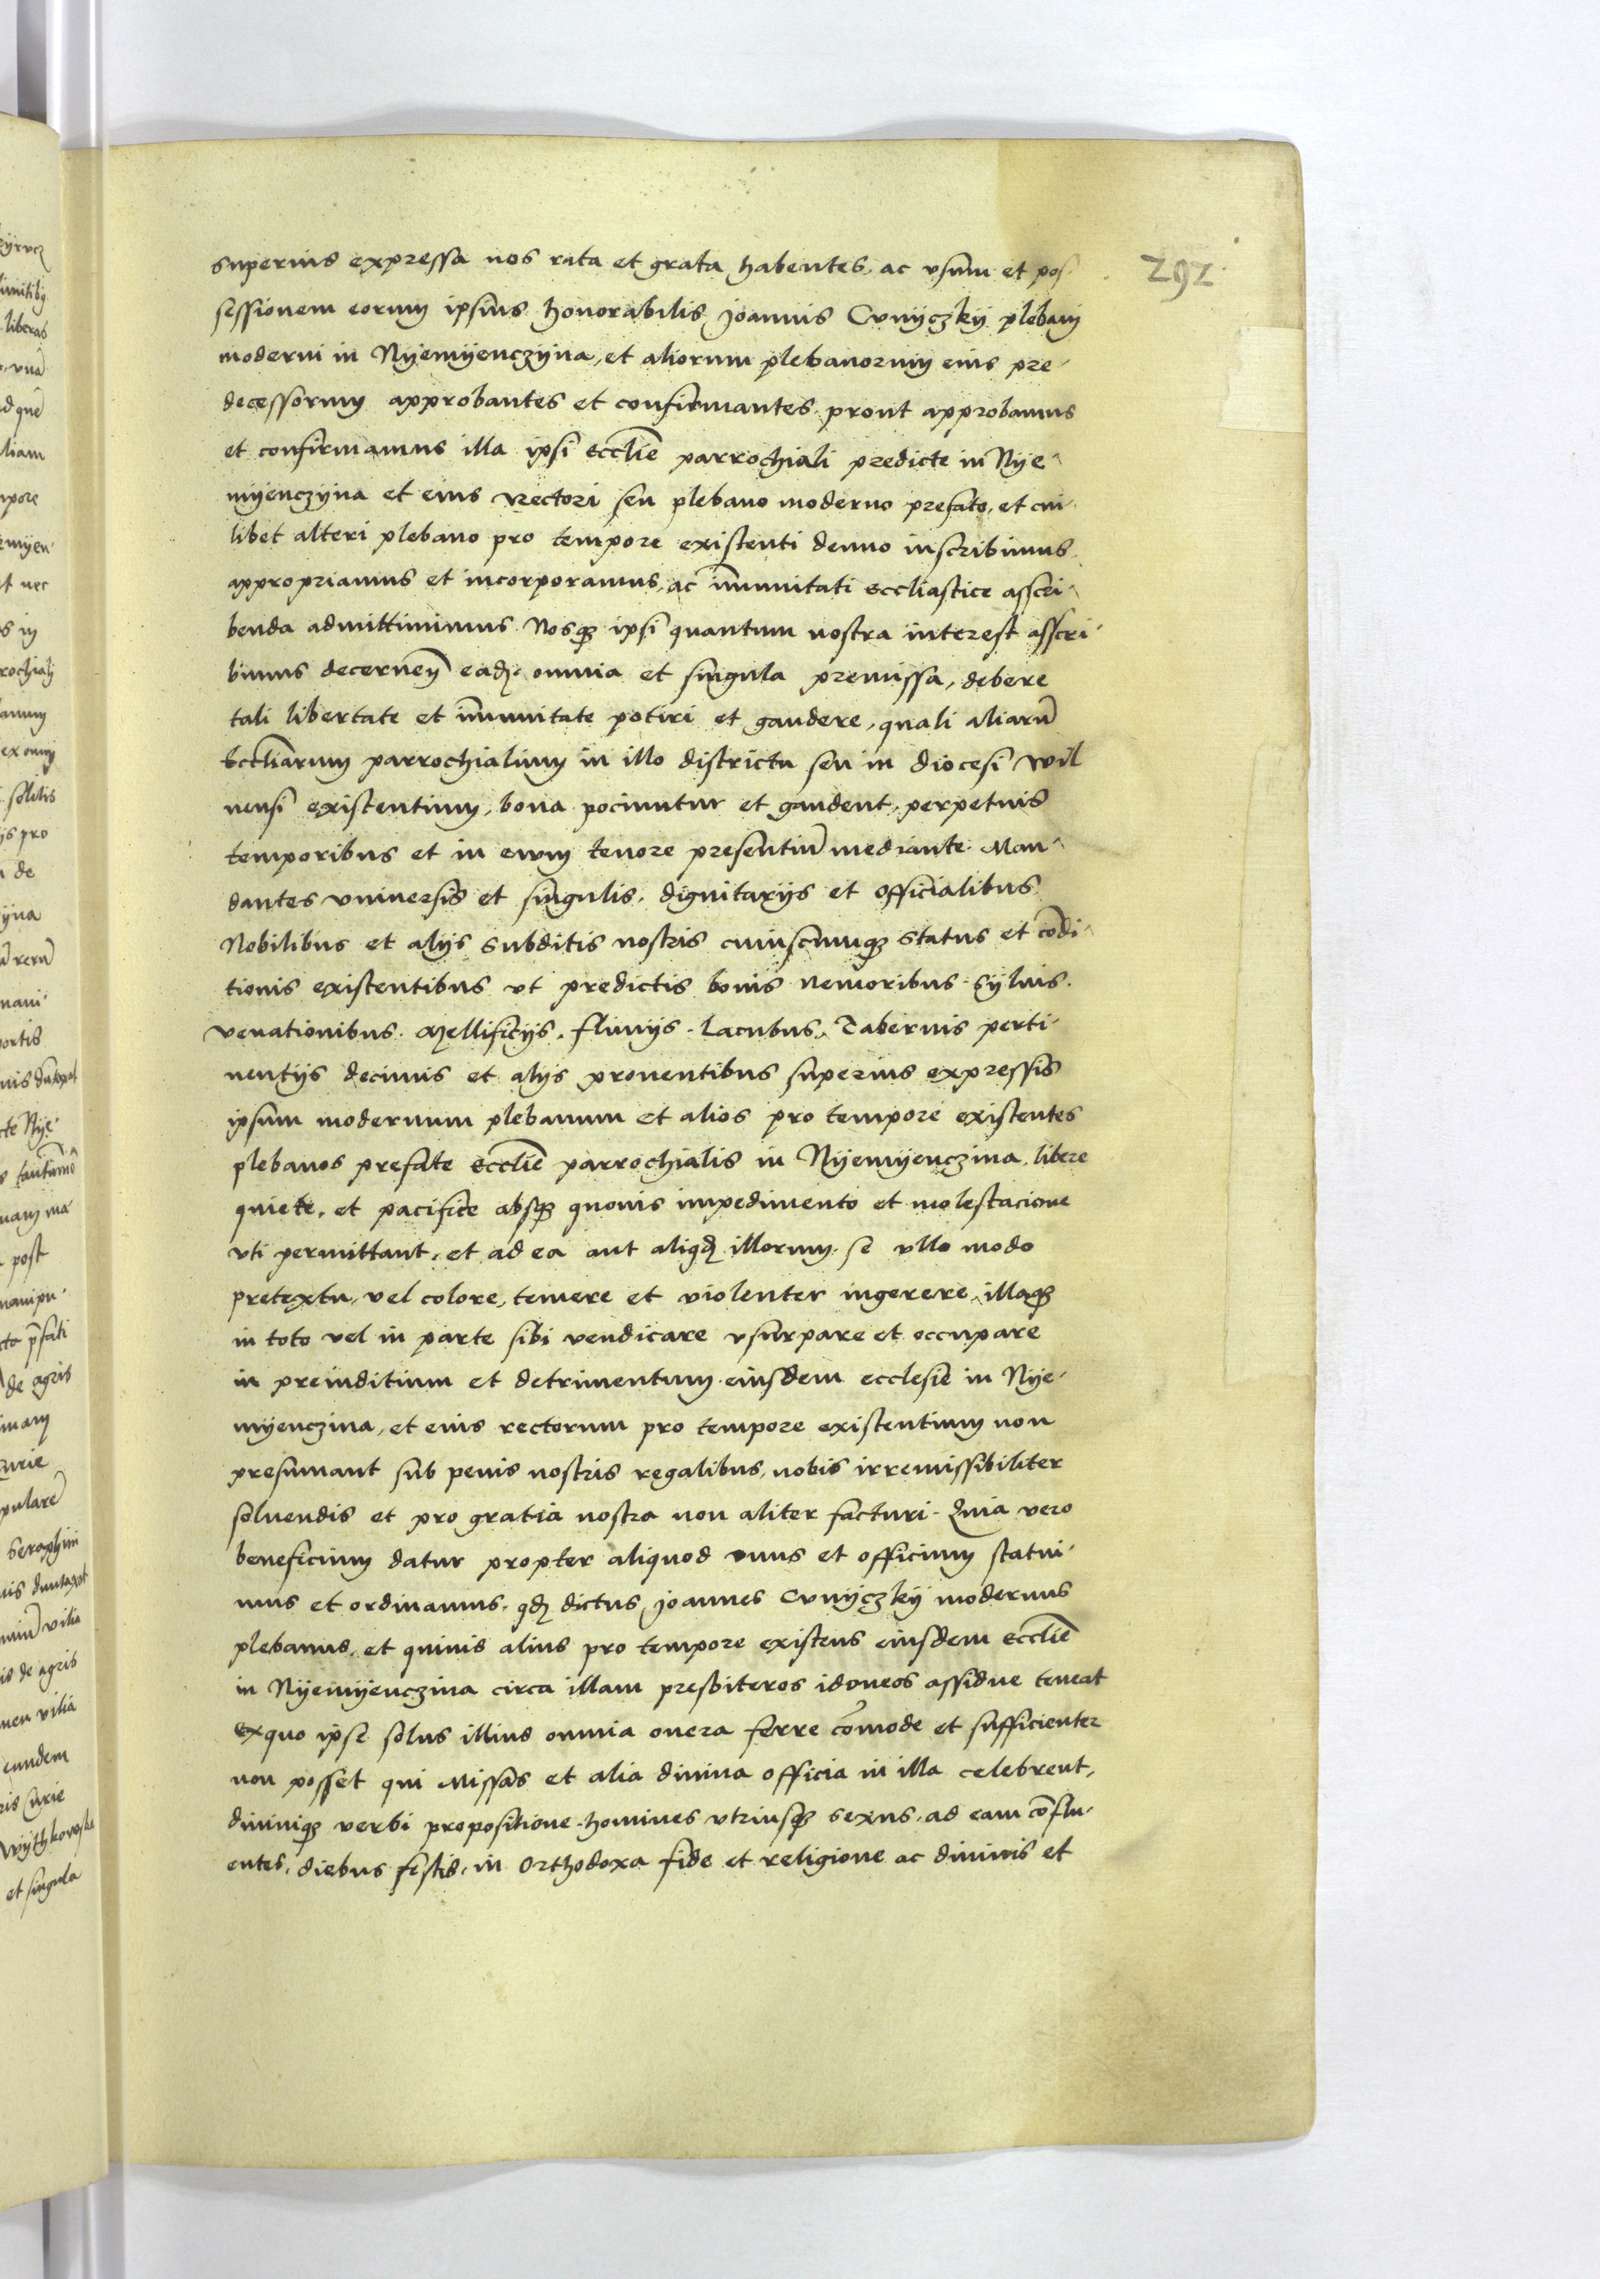 292
superius expressa nos rata et grata habentes, ac vsum et pos-
sessionem eorum ipsius honorabilis Joannis Cvnyczky plebani
moderni in Nyemyenczyna, et aliorum plebanorum eius pre-
decessorum approbantes et confirmantes. prout approbamus
et confirmamus illa ipsi Ecclie parrochiali predicte in Nye-
myenczyna et eius rectori seu plebano moderno prefato, et cui-
libet alteri plebano pro tempore existenti denuo inscribimus
appropriamus et incorporamus, ac immunitati Eccliastice asscri-
benda admittimus. Nosq3 ipsi quantum nostra interest asscri-
bimus decernen eadem omnia et singula premissa, debere
tali libertate et immunitate potiri et gaudere, quali aliarū
Eccliarum parrochialium in illo districtu seu in diocesi Wil
nensi existentium, bona pociuntur et gaudent, perpetuis
temporibus et in ewm tenore presentiū mediante. Man-
dantes vniuersis et singulis, dignitarijs et officialibus
Nobilibus et alijs subditis nostris cuiuscumq3 status et cōdi-
tionis existentibus vt predictis bonis nemoribus. syluis.
venationibus. Mellificijs. fluuijs. Lacubus. Tabernis perti-
nentijs decimis et alijs prouentibus superius expressis
ipsum modernum plebanum et alios pro tempore existentes
plebanos prefate Ecclie parrochialis in Nyemyenczina, libere
quiete, et pacifice absq3 quouis impedimento et molestacione
vti permittant, et ad ea aut aliqd illorum se vllo modo
pretextu, vel colore, temere et violenter ingerere, illaq3
in toto vel in parte sibi vendicare vsurpare et occupare
in preiuditium et detrimentum eiusdem ecclesie in Nye-
myenczina, et eius rectorum pro tempore existentium non
presumant sub penis nostris regalibus, nobis irremissibiliter
soluendis et pro gratia nostra non aliter facturi. Quia vero
beneficium datur propter aliquod onus et officium statui-
mus et ordinamus. qd dictus Joannes Cvnyczky modernus
plebanus, et quiuis alius pro tempore existens eiusdem Ecclie
in Nyemyenczina circa illam presbiteros idoneos assidue teneat
ex quo ipse solus illius omnia onera ferre cōmode et sufficienter
non posset qui Missas et alia diuina officia in illa celebrent,
diuiniq3 verbi propositione homines vtriusq3 sexus, ad eam cōflu-
entes, diebus festis, in Orthodoxa fide et religione ac diuinis et